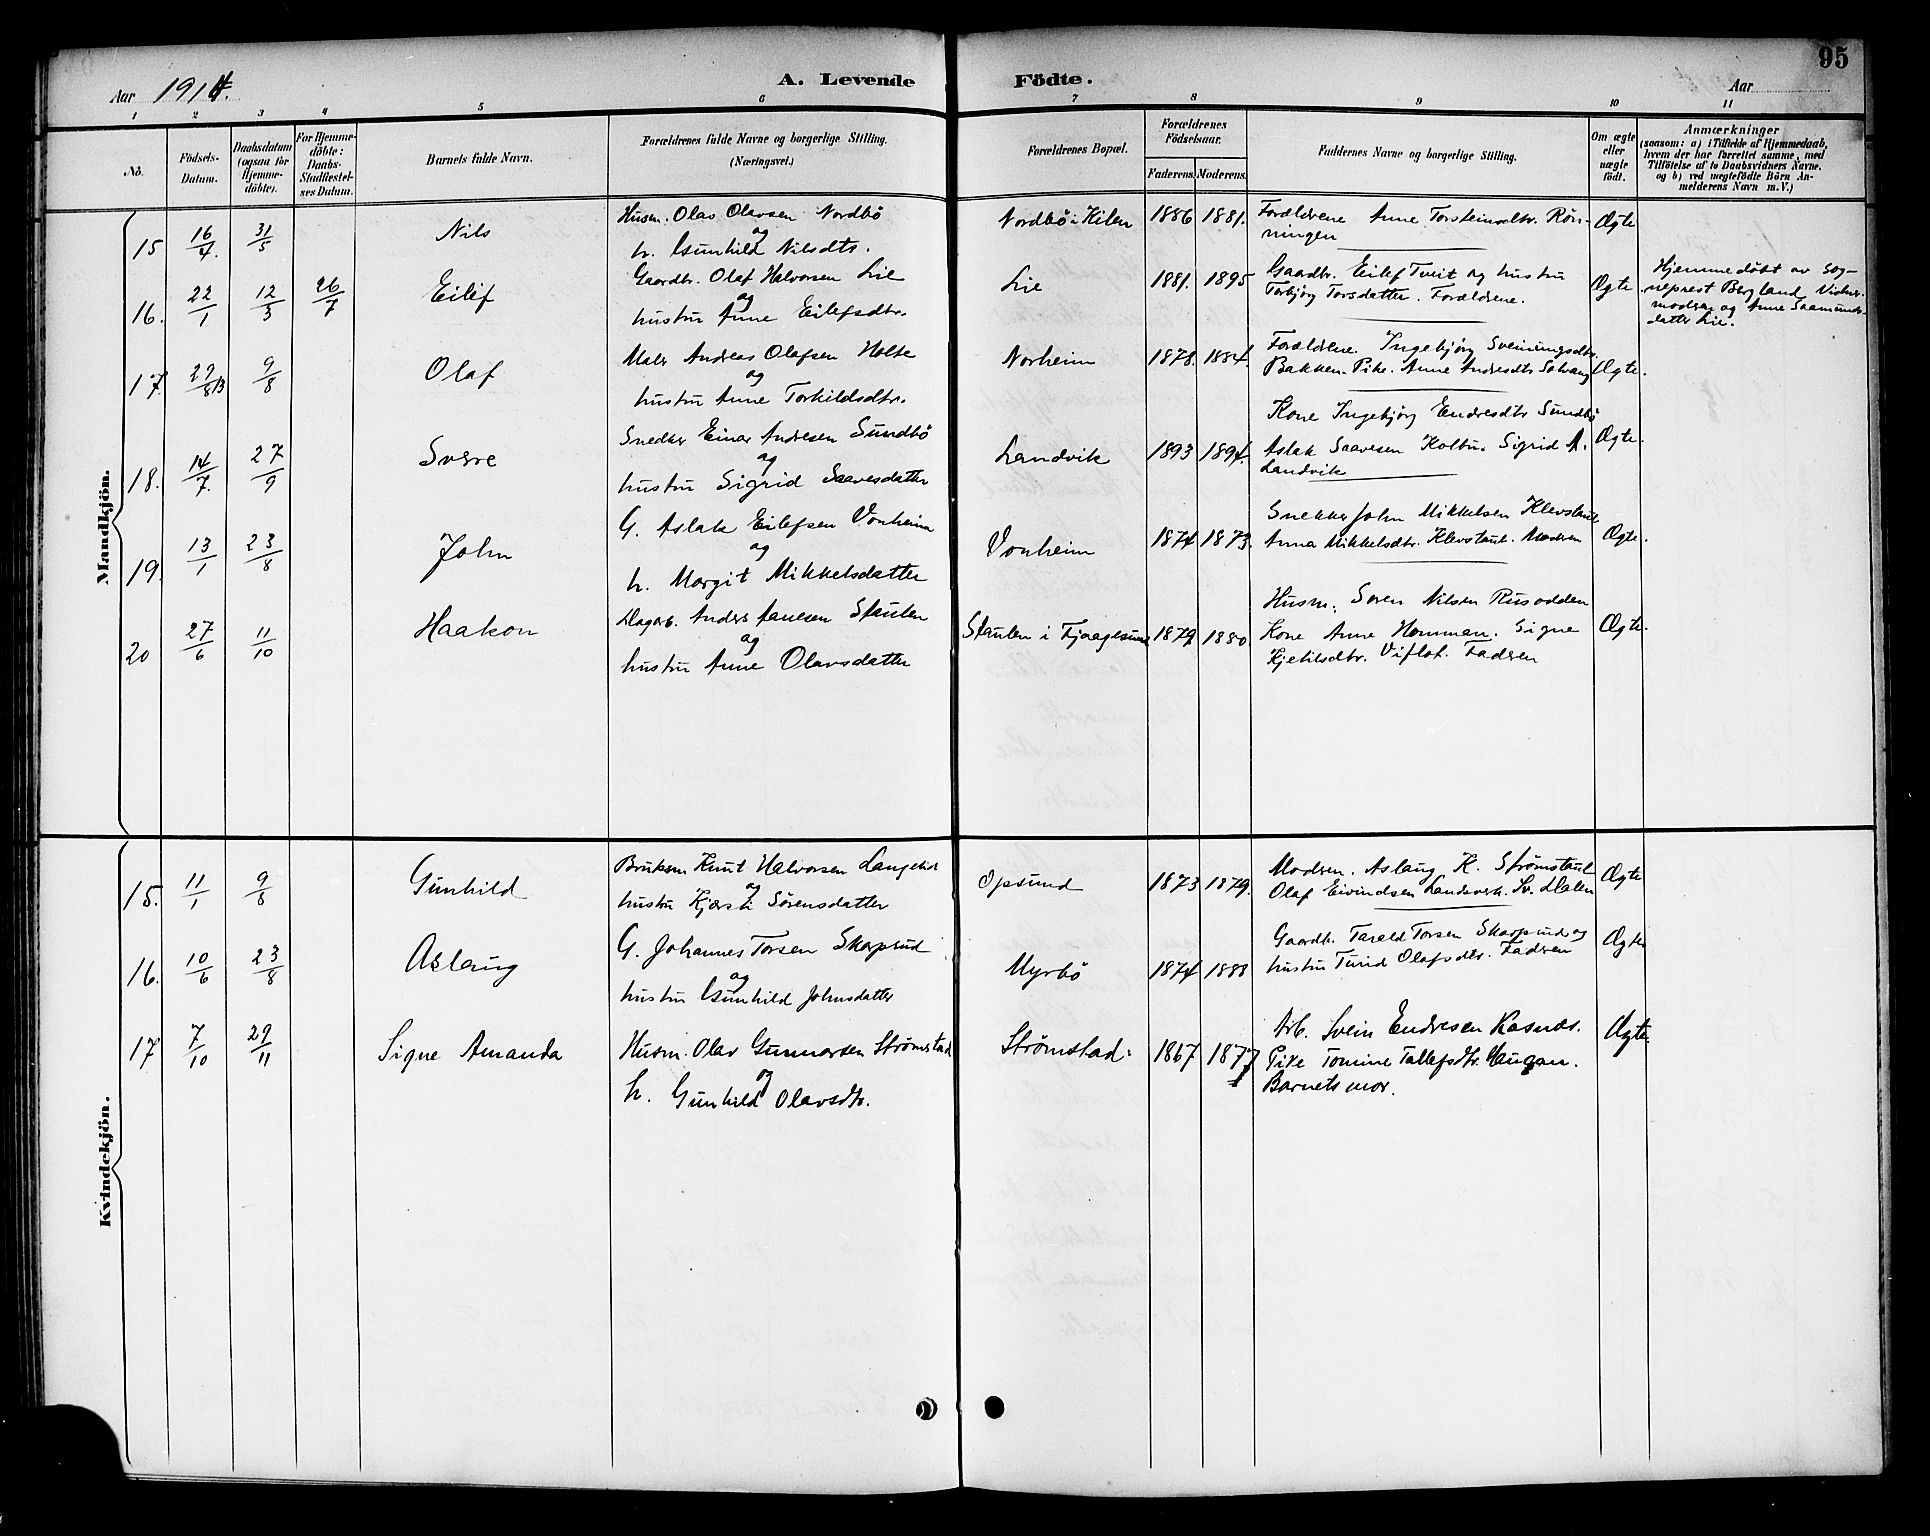 95
Aar 1914.
A. Levende Födte.
Aar
1 2 3 4 5 6 7 8 9 10 11
No.
Födsels-Datum.
Daabsdatum (ogsaa for Hjemme-döbte).
For Hjemme-döbte: Daabs-Stadfæstel-ses Datum.
Barnets fulde Navn.
Forældrenes fulde Navne og borgerlige Stilling.
(Næringsvei.)
Forældrenes Bopæl.
Forældrenes Födselsaar.
Faderens. Moderens.
Faddernes Navne og borgerlige Stilling.
Om ægte eller uægte födt.
Anmærkninger
(saasom: a) i Tilfælde af Hjemmedaab, hvem der har forrettet samme, med Tilföielse af to Daabsvidners Navne. og b) ved uægtefödte Börn Anmelderens Navn m. V.)
Mandkjön.
15 16/4. 31/5 Nils
Husm. Olav Olavsen Nordbö
og
h. Gunhild Nilsdtr.
Nordbö i Kilen 1886 1881.
Forældrene Anne Torsteinsdtr. Rön-
ningen
Ægte
16. 22/1 12/3 26/7 Eilif
Gaardbr. Olaf Halvorsen Lie
og
hustru Anne Eilefsdtr.
Lie 1881. 1895
Gaardbr. Eilef Tveit og hustru
Torbjörg Torsdatter. Forældrene.
Ægte
Hjemmedöbt av sog-
neprest Bergland. Vidner
modren og Anne Saamunds-
datter Lie.
17. 29/8 13 9/8 Olaf
Maler Andreas Olafsen Holte
og
hustru Anne Torkildsdtr.
Norheim 1878. 1884.
Forældrene. Ingebjörg Sveinungsdtr.
Bakken. Pike. Anne Andresdtr Solvang
Ægte.
18. 14/7. 27/9 Sverre
Snedker Einar Andresen Sundbö
og
hustru Sigrid Saavesdatter
Landvik 1893 1894.
Kone Ingebjörg Endresdtr Sundbö
Aslak Saavesen Sigrid A.
Landvik
Ægte
19. 13/1 23/8 John
G. Aslak Eilefsen Vonheim
og
h. Margit Mikkelsdatter
Vonheim 1874 1873.
Snekker John Mikkelsen Klevstaul
Anna Mikkelsdtr. Klevstaul. Modren
Ægte.
20 27/6 11/10 Haakon
Dagarb. Anders Staulen
og
hustru Anne Olavsdatter
Staulen i Fjaagesund 1879 1880.
Husm. Soren Nilsen Rusodden
Kone Anne Hamman. Signe
Kjetilsdtr. Viflot. Fadren
Ægte.
Kvindekjön.
15. 11/1 9/8 Gunhild
Bruksm Knut Halvorsen Langelid
og
hustru Kjersti Sörensdatter
Opsund 1873 1879.
Modren. Aslaug K. Strömstaul
Olaf Eivindsen Landsverk. Sv. Dalen
Ægte
16. 10/6 23/8 Aslaug
G. Johannes Torsen Skarprud
og
hustru Gunhild Johnsdatter
Myrbö 1874 1888
Gaardb. Tarald Torsen Skarprud og
hustru Turid Olafsdtr. Fadren
Ægte
17 7/10 29/11 Signe Amanda
Husm. Olav Gunnarsen Strömstad
og
h. Gunhild Olavsdtr.
Strömstad. 1867 1877
Arb. Svein Endresen Kasnes.
Pike Tomine Tallefsdtr. Haugan.
Barnets mor.
Ægte.